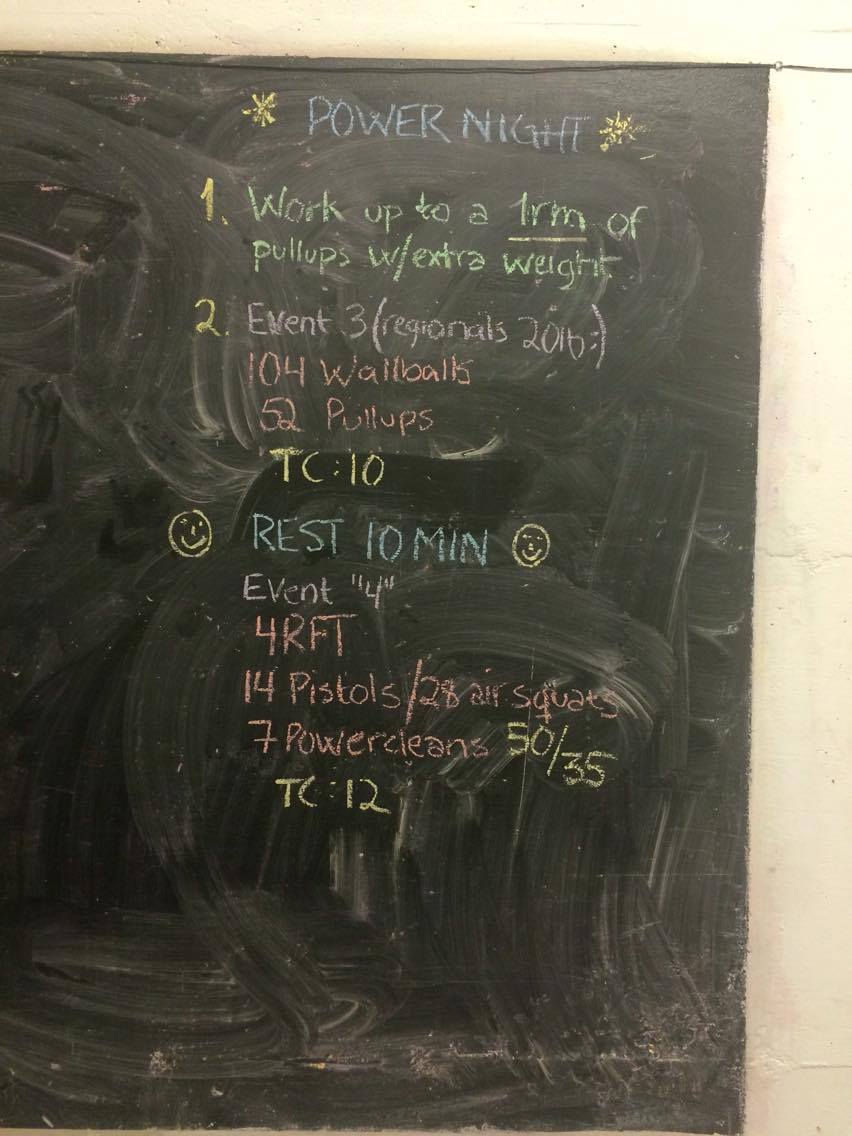 POWER NIGHT
1. Work up to a 1rm of
pullups w/extra weight
2. Event 3 (regionals 2016:)
104 Wallballs
52 Pullups
TC:10
REST 10 MIN
Event "4"
4RFT
14 Pistols/28 air squats
7 Powercleans 50/35
TC:12